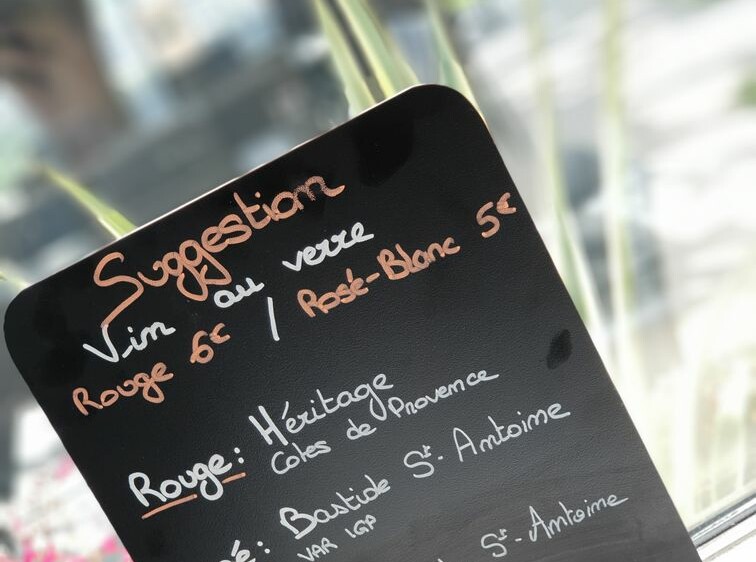 Suggestion
Vin au verre
Rouge 6€ / Rosé-Blanc 5€
Rouge: Héritage
Cotes de Provence
é: Bastide St-Antoine
VAR IGP
St-Antoine